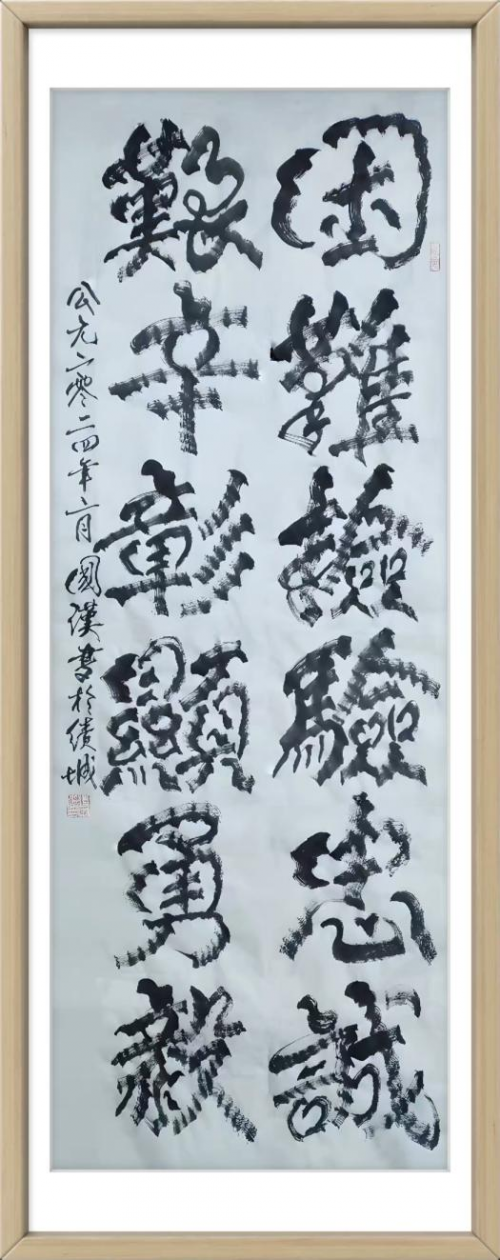 困難檢驗忠誠
艱辛彰顯勇毅
公元二零二四年六月國漢書於績城